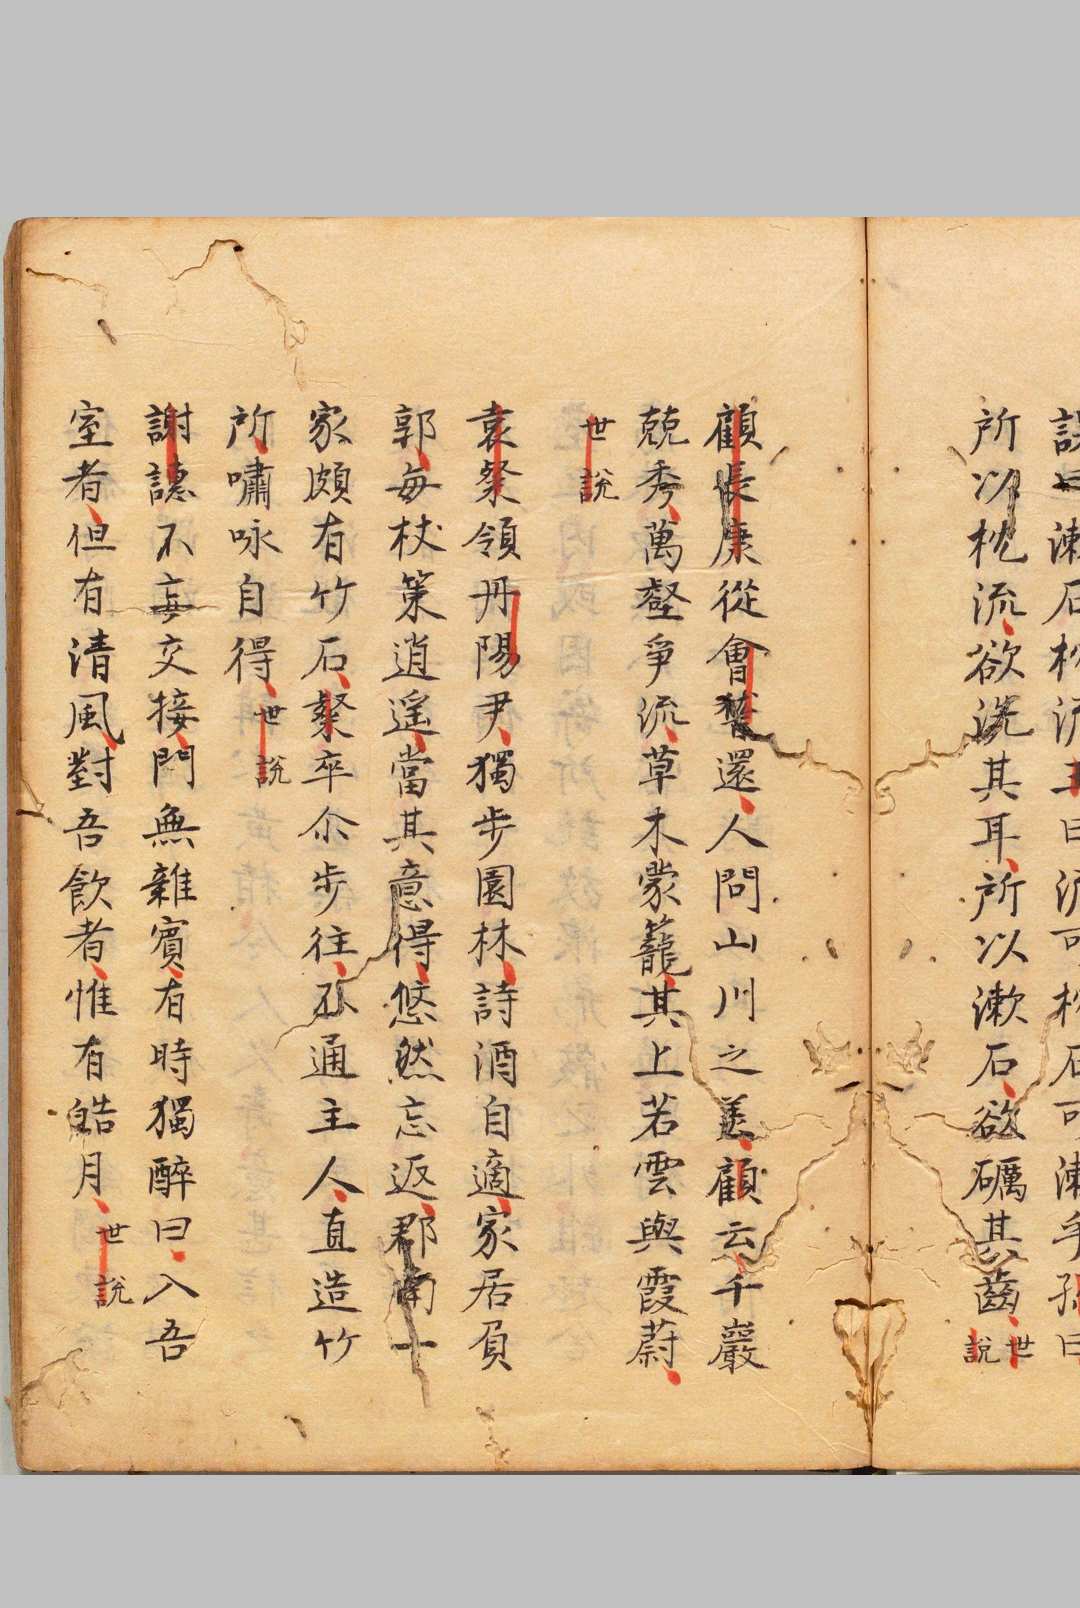 誤曰漱石枕流王曰流可枕石可漱乎孫曰
所以枕流欲洗其耳所以漱石欲礪其齒世說
顧長康從會稽還人問山川之美顧云千巖
競秀萬壑爭流草木蒙籠其上若雲興霞蔚
世說
袁粲領丹陽尹獨步園林詩酒自適家居負
郭每杖策逍遥當其意得悠然忘返郡南一
家頗有竹石粲卒尒步往不通主人直造竹
所嘯咏自得世說
謝譓不妄交接門無雜賓有時獨醉曰入吾
室者但有清風對吾飲者惟有皓月世說